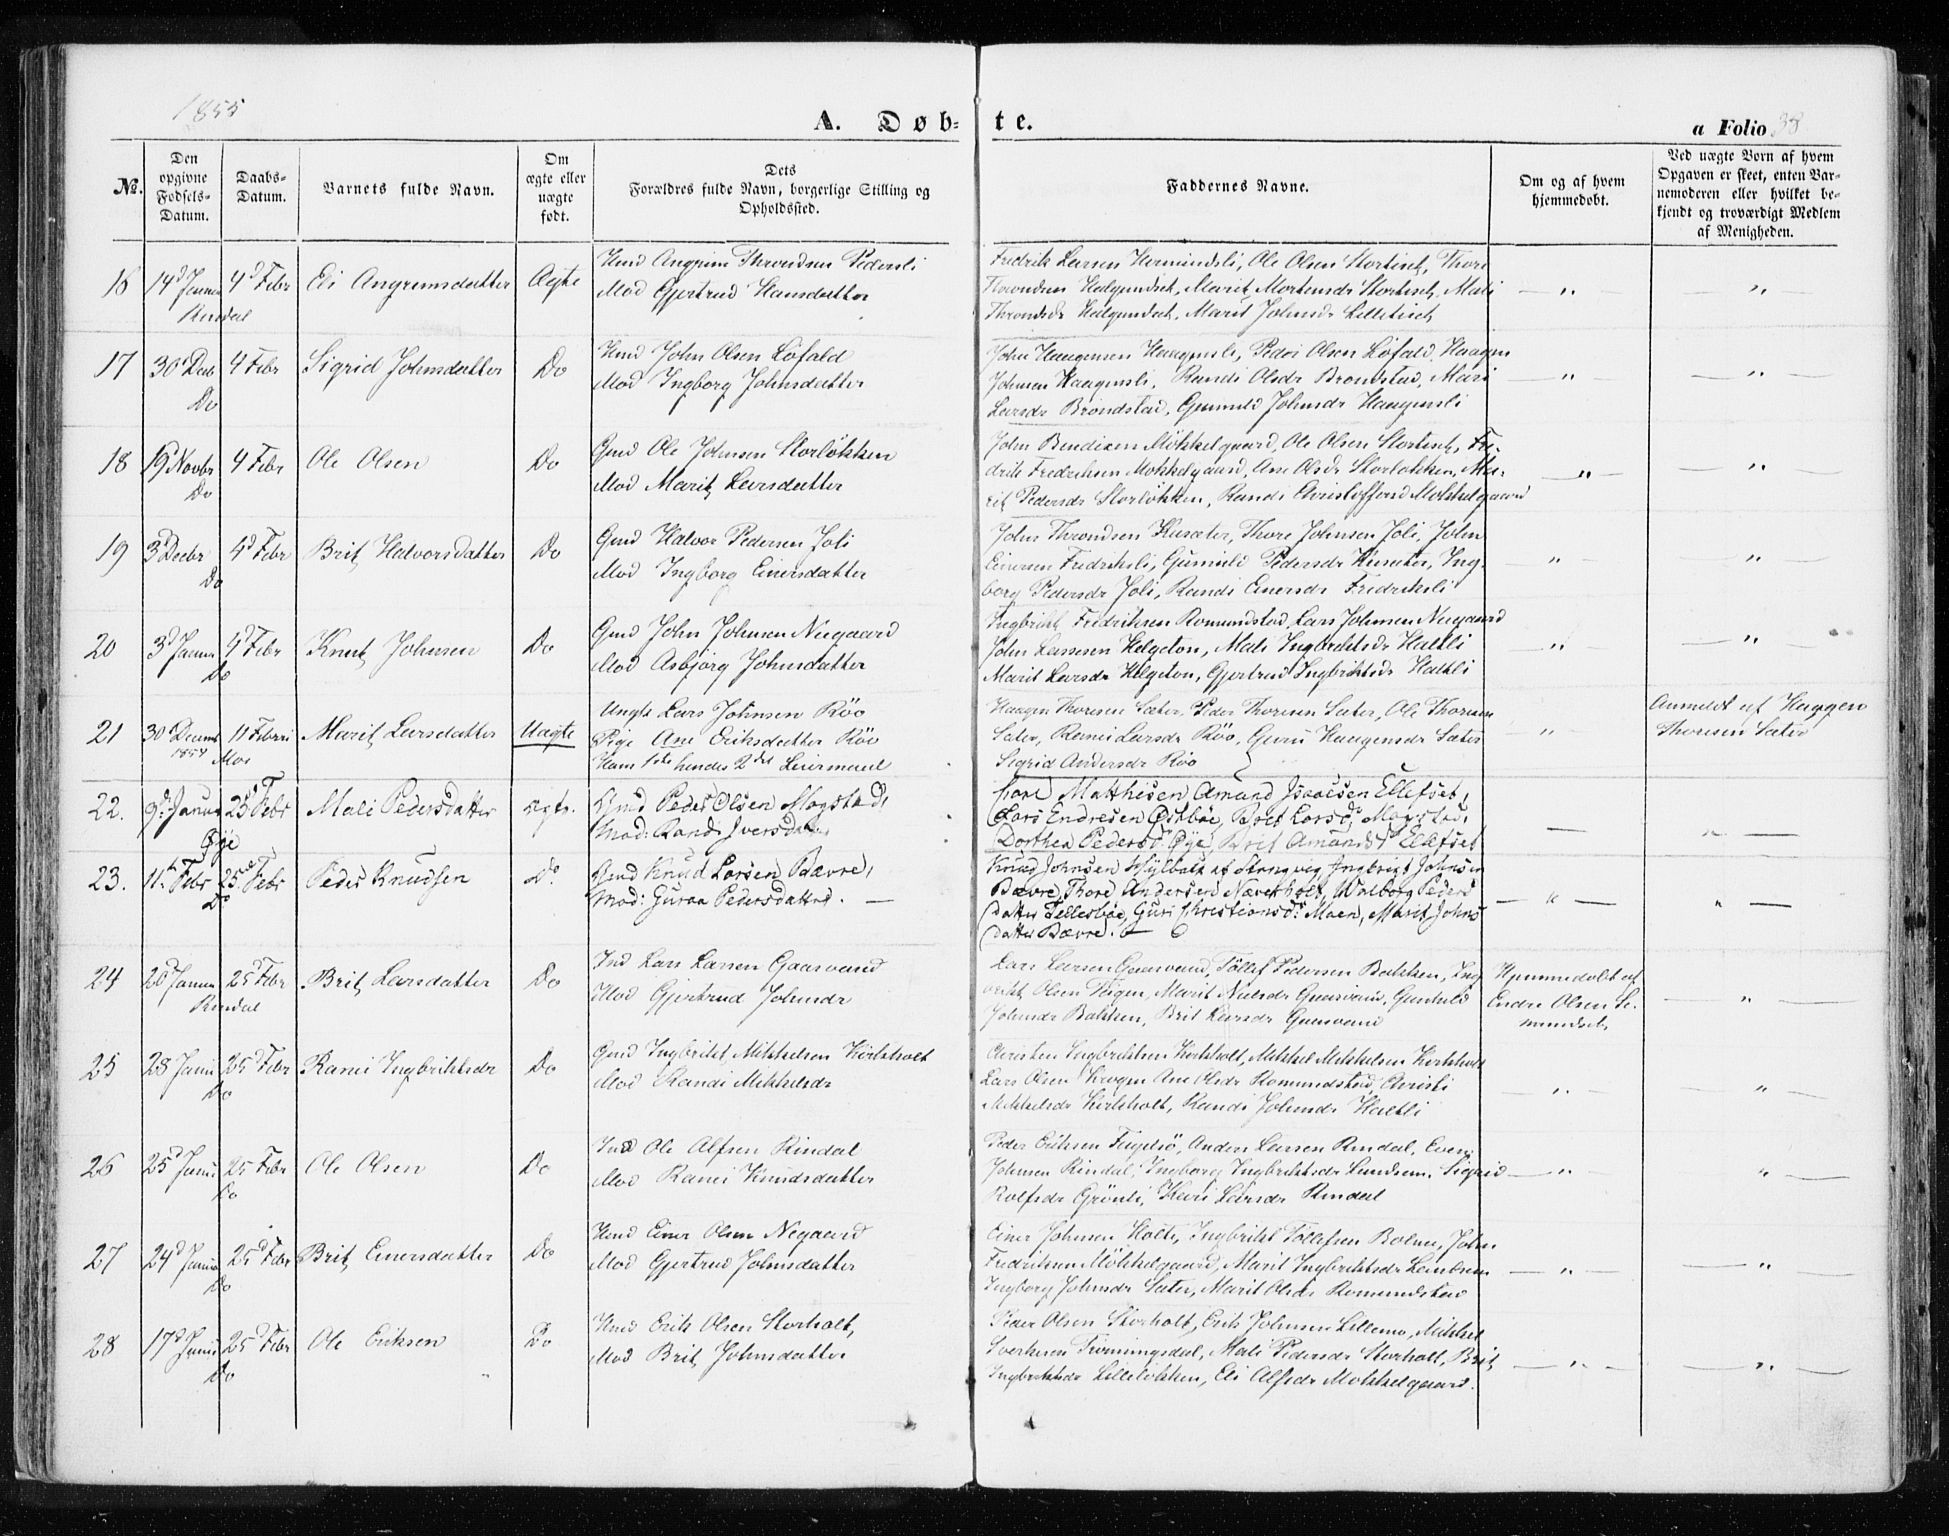 1855
A. Døb-te.
a Folio 38
No.
Den opgivne Fødsels-Datum.
Daabs-Datum.
Barnets fulde Navn.
Om ægte eller uægte født.
Dets Forældres fulde Navn, borgerlige Stilling og Opholdssted.
Faddernes Navne.
Om og af hvem hjemmedøbt.
Ved uægte Børn af hvem Opgaven er skeet, enten Barnemoderen eller hvilket bekjendt og troværdigt Medlem af Menigheden.
16 14d Januar 4d Febr Eli Angrimsdatter Ægte
Rindal
Mod Gjertrud Hansdatter
Fredrik Larsen Hermundsli, Ole Olsen Stortisch, Thore
Throndsen Halgundset, Marit Mortensdr Stortisch, Mali
Throndsdr Halgundset, Marit Johnsdr Lilletisch
17 30 Decb 4 Febr Sigrid Johnsdatter Do
Do
Gmd John Olsen Löfald
Mod Ingborg Johnsdatter
John Haagensen Haagensli, Peder Olsen Löfald, Haagen
Johnsen Haagensli, Randi Olsdr Brøndstad, Mari
Larsdr Brøndstad, Gunnild Johnsdr Haagensli
18 19 Novbr 4 Febr Ole Olsen Do
Do
Gmd Ole Johnsen Storløkken
Mod Marit Larsdatter
John Bendixen Møkkelgaard, Ole Olsen Stortisch, Fre-
drik Fredriksen Møkkelgaard, Ane Olsdr Storløkken, Ma-
rit Pedersdr Storløkken, Randi Christoffersd Møkkelgaard
19 3d Decbr 4d Febr Brit Halvorsdatter Do
Do
Gmd Halvor Pedersen Joli
Mod Ingborg Einersdatter
John Throndsen Husæter, Thore Johnsen Joli, John
Einersen Fredriksli, Gunnild Pedersdr Husæter, Ing-
borg Pedersdr Joli, Randi Einersdr Fredriksli
20 3d Januar 4d Febr Knut Johnsen Do
Do
Gmd John Johnsen Nergaard
Mod Asbjörg Johnsdatter
Ingbrikt Fredriksen Romundstad, Lars Johnsen Nergaard
John Larsen Helgeton, Mali Ingbriktsdr Haltli
Marit Larsdr Helgeton, Gjertrud Ingbriktsdr Haltli
21 30 Decemb 11 Febru Marit Larsdatter Uægte
1854 Moe
Ungk Lars Johnsen Röe
Pige Ane Eriksdatter Röe
Hans 1ste hendes 2det Leiermaal
Haagen Thoresen Sæter, Peder Thoresen Sæter, Ole Thoresen
Sæter, Ranei Larsdr Röe, Guru Haagensdr Sæter
Sigrid Andersdr Röe
Anmeldt af Haagen
Thoresen Sæter
22. 9d Januar 25d Febr Mali Pedersdatter ægte.
Øye
Gmd Peder Olsen Mogstad,
Mod: Randi Iversdatter
Tore Mathisen Amund Isaacsen Ellefset,
Lars Endresen Østbøe, Brit Larsd: Mogstad,
Dorthea Pedersd Øye, Brit Amundsd Ellefset
23. 11te Febr 25de Febr Peder Knudsen Do.
Do
Gmd Knud Larsen Bævre,
Mod: Guroa Pedersdatter.
Knud Johnsen Hylbak af Stangvig, Ingbrigt Johnsen
Bævre, Thore Andersen Næverholt, Walborg Peders
datter Tellesbøe, Guri Christiansd: Moen, Marit Johns
datter Bævre.
24 20d Januar 25d Febr Brit Larsdatter Do
Rindal
Ind Lars Larsen Gaasvand
Mod Gjertrud Johnsdr
Lars Larsen Gaasvand, Tøllef Pedersen Bakken, Ing
brikt Olsen Teigen, Marit Nielsdr Gaasvand, Gunhild
Johnsdr Bakken, Brit Larsdr Gaasvand
Hjemmedøbt af
Endre Olsen Ro-
mundset
25 28 Janu 25d Febr Ranei Ingbriktsdr Do
Do
Gmd Ingbrikt Mikkelsen Kirkholt
Mod Randi Mikkelsdr
Christen Ingbriktsen Kirkholt, Mikkel Mikkelsen Kirkholt
Lars Olsen Krogen Ane Olsdr Romundstad, Christi
Mikkelsdr Kirkholt, Randi Johnsdr Haltli
26 25d Janu 25 Febr Ole Olsen Do
Do
Ind Ole Alfsen Rindal
Mod Ranei Knudsdatter
Peder Eriksen Fugelsö, Anders Larsen Rindal, Even
Johnsen Rindal, Ingborg Ingbriktsdr Lundsem, Sigrid
Rolfsdr Grönli, Kari Larsdr Rindal
27 24d Janu 25d Febr Brit Einersdatter Do
Do
Gmd Einer Olsen Negaard
Mod Gjertrud Johnsdatter
Einer Johnsen Holte, Ingbrikt Tøllefsen Bolme, John
Fredriksen Møkkelgaard, Marit Ingbriktsdr Landsem
Ingborg Johnsdr Sæter, Marit Olsdr Romundstad
28 17d Janu 25d Febr Ole Eriksen Do
Do
Gmd Erik Olsen Storholt,
Mod Brit Johnsdatter
Peder Olsen Storholt, Erik Johnsen Lillemo, Mikkel
Sverkesen Tiøningsdal, Mali Pedersdr Storholt, Brit
Ingbriktsdr Lilleløkken, Eli Alfsdr Møkkelgaard.